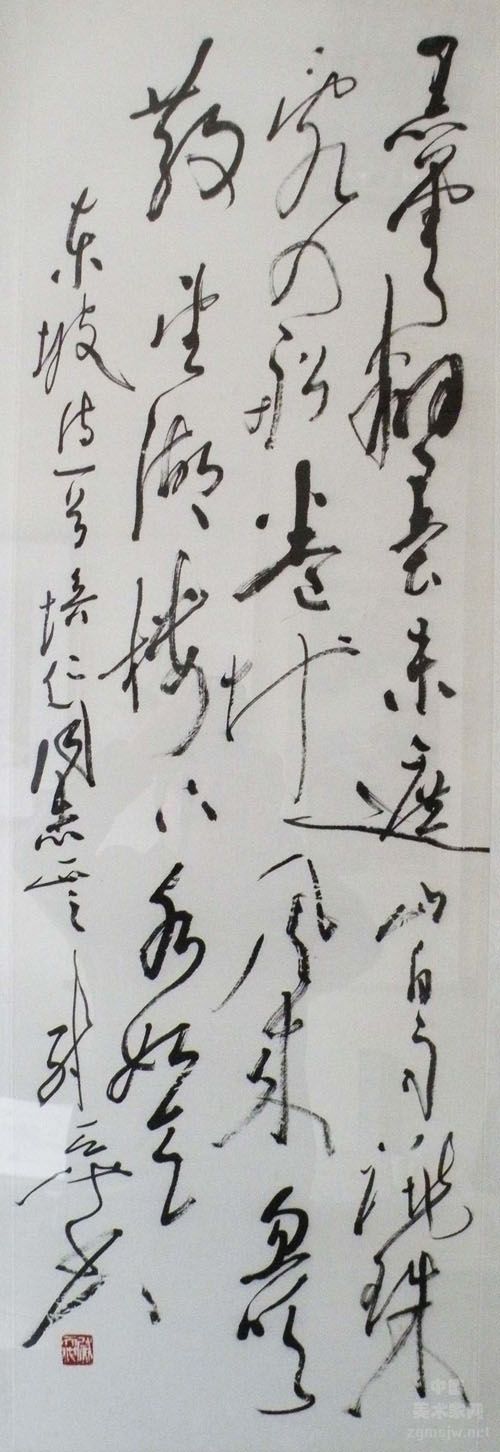 黑雲翻墨未遮山白雨跳珠
亂入船卷地風來忽吹
散望湖樓下水如天
东坡诗一首培仁同志正之书
中国
美术家网
zgmsjw.net